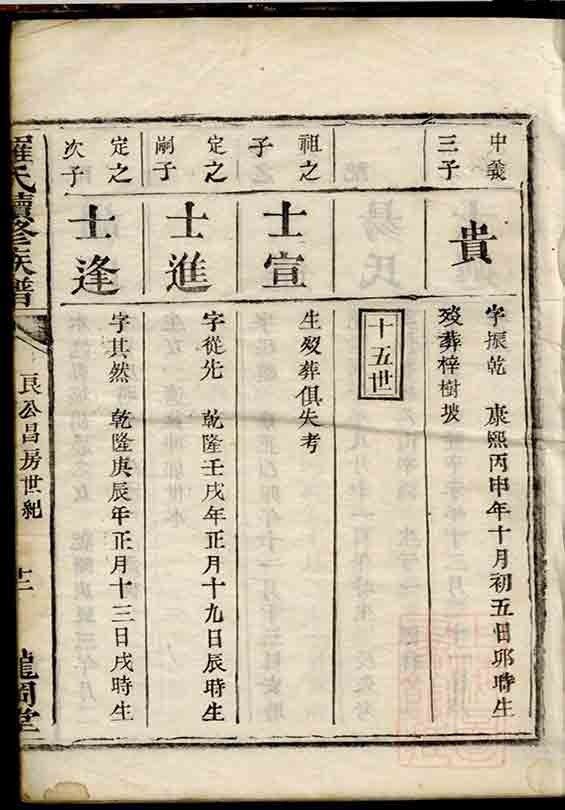 中義
三子
貴
字振乾　康熙丙申年十月初五日卯時生
歿葬梓樹坡
十五世
祖之
子
士宣
生歿葬俱失考
定之
嗣子
士進
字從先　乾隆壬戌年正月十九日辰時生
定之
次子
士逢
字其然　乾隆庚辰年正月十三日戌時生
羅氏續修族譜
良公昌房世紀